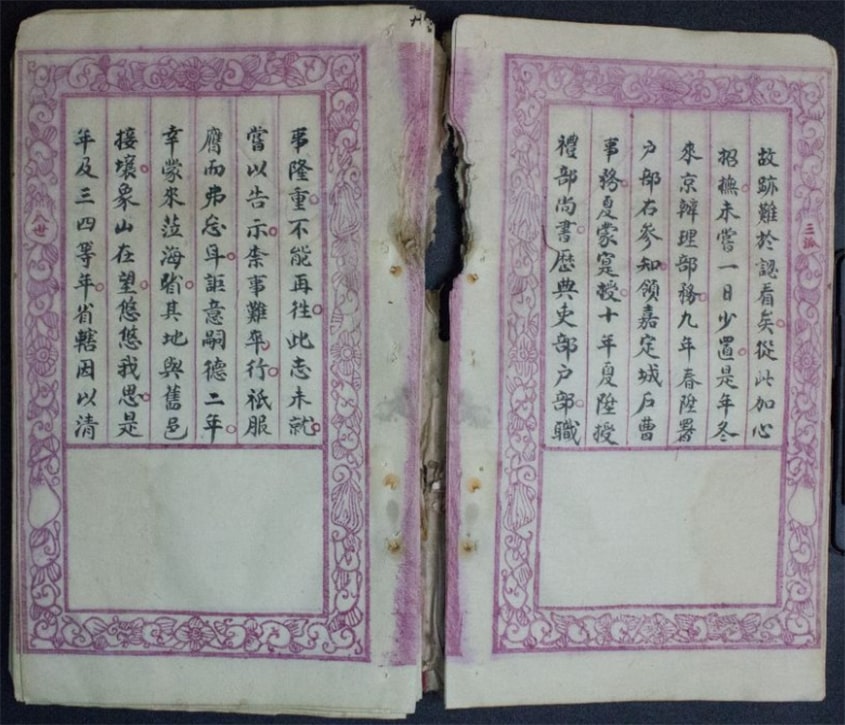 三派
故跡難於認看矣從此加心
招撫未嘗一日少置是年冬
來京辦理部務九年春陞署
户部右參知領嘉定城户曹
事務夏蒙寔授十年夏陞授
禮部尚書歷典吏部户部職
事隆重不能再徃此志未就
嘗以告示柰事難卒行祗服
膺而弗忘耳詎意嗣德二年
幸蒙來蒞海省其地與舊邑
接壤象山在望悠悠我思是
年及三四等年省轄因以清
八世